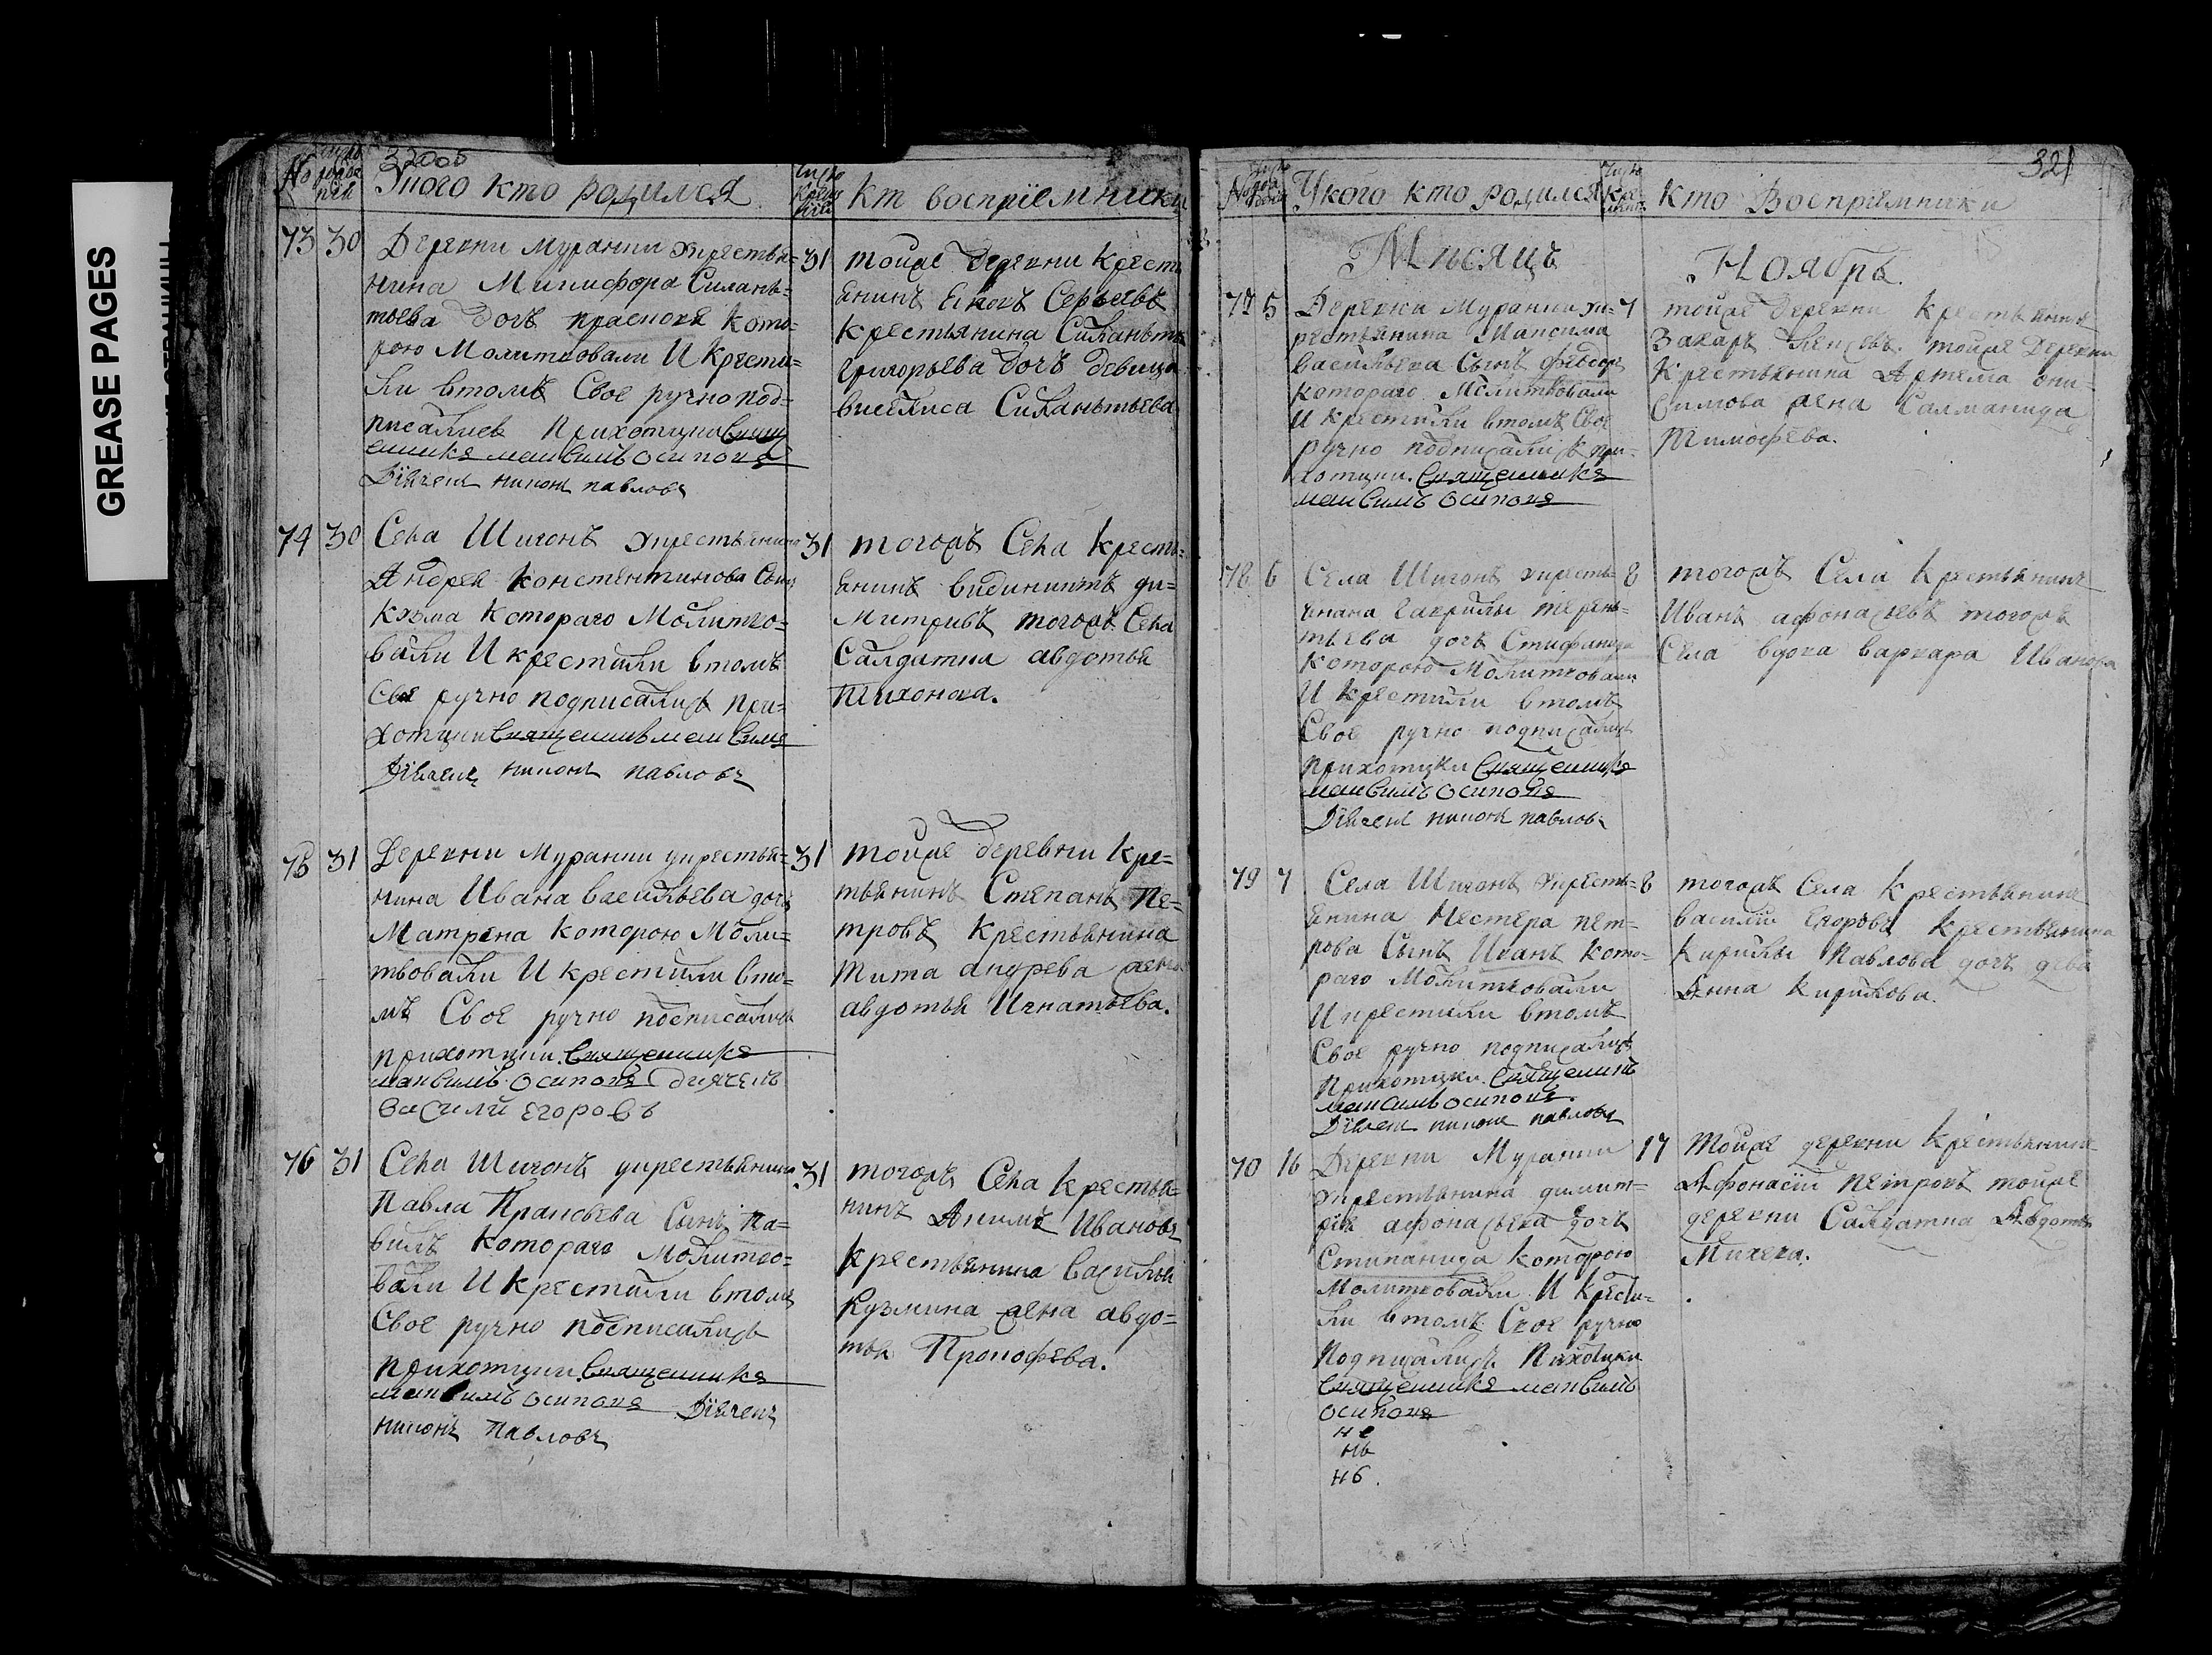 GREASE PAGES
32005
№ рожденія
У ково кто родился
число крещенія
Кт восприемники
73 30
Деревни Муранки у крестья=
нина Никифора Силанъ=
тьева дочъ Праскоѳя кото=
рою Молитвовали И крести=
ли втомъ Свое ручно под=
писалися Прихотцки Священ
никъ максимъ осиповъ
Діячекъ никонъ павловъ
31
тойже деревни Крестъ
янинъ Яковъ Сергѣевъ
крестьянина Силанътия
григорьева дочъ девица
василиса Силанътьева
74 30
Села Шигонъ у крестьянина
Андрея Констентинова Сынъ
козма Котораго Молитво=
вали И крестили втомъ
Свое ручно подписались при=
хотцки Священикъ максимъ
Діячекъ никонъ павловъ
31
тогожъ Села Кресть=
янинъ видининтъ ди=
митривъ тогожъ Села
Салдатка авдотья
Тихонова.
75 31
Деревни Муранки у крестья=
нина Ивана васильева дочь
Матрена Которою Моли=
твовали И крестили вто=
мъ Свое ручно подписались
прихотцки. Священникъ
максимъ осиповъ диячекъ
василй егоровъ
31
тойже деревни кре=
тьянинъ Степанъ Пе=
тровъ крестьянина
Тита андрева жена
авдотья Игнатьева.
76 31
Села Шигонъ у крестьянина
Павла Пракоѳьева Сынъ Па=
вилъ Котораго Молитво=
вали И Крестили втомъ
Свое ручно подписались
Прихотцки. Священникъ
максимъ осиповъ Діячекъ
никонъ Павловъ
31
тогожъ Села крестья=
нинъ Акимъ Ивановъ
крестьянина василья
Кузмина жена авдо=
тья Прокофева.
321
У кого кто родился
Кто Восприемники
Мисяцъ Ноябръ.
77 5
Деревни Муранки у к=
рестьянина Максима
васильева Сынъ Федоръ
котораго Молитвовали
И Крестили втомъ Свое
ручно подписались при=
хотцки. Священникъ
максимъ осиповъ
7
тойже Деревни Крестьянинъ
Захаръ тойже Деревни
Крестьянина Артема они=
симова жена Салманида
Тимофева.
78 6
Села Шигонъ у кресть=
янина Гаврилы терень=
тьева дочъ Стифанида
Которою Молитвовали
И крестили втомъ
Свое ручно подписались
прихотцки Священникъ
максимъ осиповъ
Діячекъ никонъ павловъ
8
тогожъ Села Крестьянинъ
Иванъ афонасьевъ тогожъ
Села вдова варвара Иванова
79 7
Села Шигонъ у кресть=
янина Нестера пет=
рова Сынъ Иванъ Кото=
раго Молитвовали
И крестили втомъ
Свое ручно подписались
Прихотцки Священикъ
максимъ осиповъ.
Діячекъ никонъ павловъ
8
тогожъ Села Крестьянинъ
василій Егоровъ крестьянина
Кирилы Павлова дочъ дева
Анна Кирилова.
70 16
Деревни Муранки
у крестьянина димит=
рия афонасьева дочъ
Стипанида Которою
Молитвовали И Крести=
ли втомъ Свое ручно
Подписались Пихотцки
Священникъ максимъ
осиповъ
17
Тойже деревни Крестьянинъ
Афонасій Петровъ тойже
деревни Салдатка Авдотья
Михева.